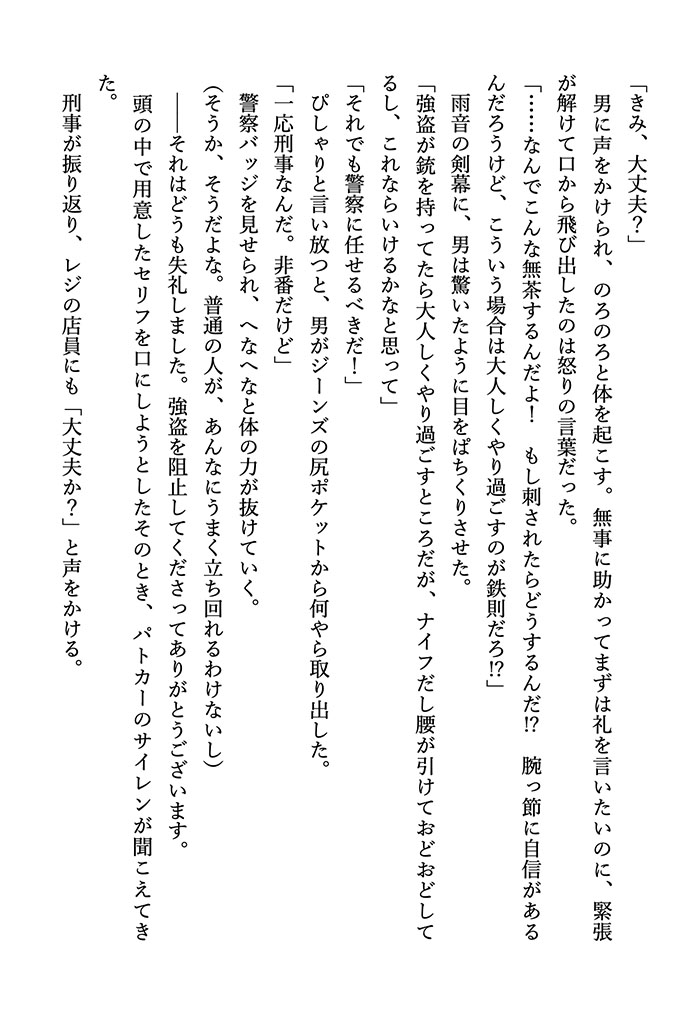 「きみ、大丈夫？」
　男に声をかけられ、のろのろと体を起こす。無事に助かってまずは礼を言いたいのに、緊張
が解けて口から飛び出したのは怒りの言葉だった。
「……なんでこんな無茶するんだよ！　もし刺されたらどうするんだ⁉　腕っ節に自信がある
んだろうけど、こういう場合は大人しくやり過ごすのが鉄則だろ⁉」
　雨音の剣幕に、男は驚いたように目をぱちくりさせた。
「強盗が銃を持ってたら大人しくやり過ごすところだが、ナイフだし腰が引けておどおどして
るし、これならいけるかなと思って」
「それでも警察に任せるべきだ！」
　ぴしゃりと言い放つと、男がジーンズの尻ポケットから何やら取り出した。
「一応刑事なんだ。非番だけど」
　警察バッジを見せられ、へなへなと体の力が抜けていく。
（そうか、そうだよな。普通の人が、あんなにうまく立ち回れるわけないし）
　――それはどうも失礼しました。強盗を阻止してくださってありがとうございます。
　頭の中で用意したセリフを口にしようとしたそのとき、パトカーのサイレンが聞こえてき
た。
　刑事が振り返り、レジの店員にも「大丈夫か？」と声をかける。